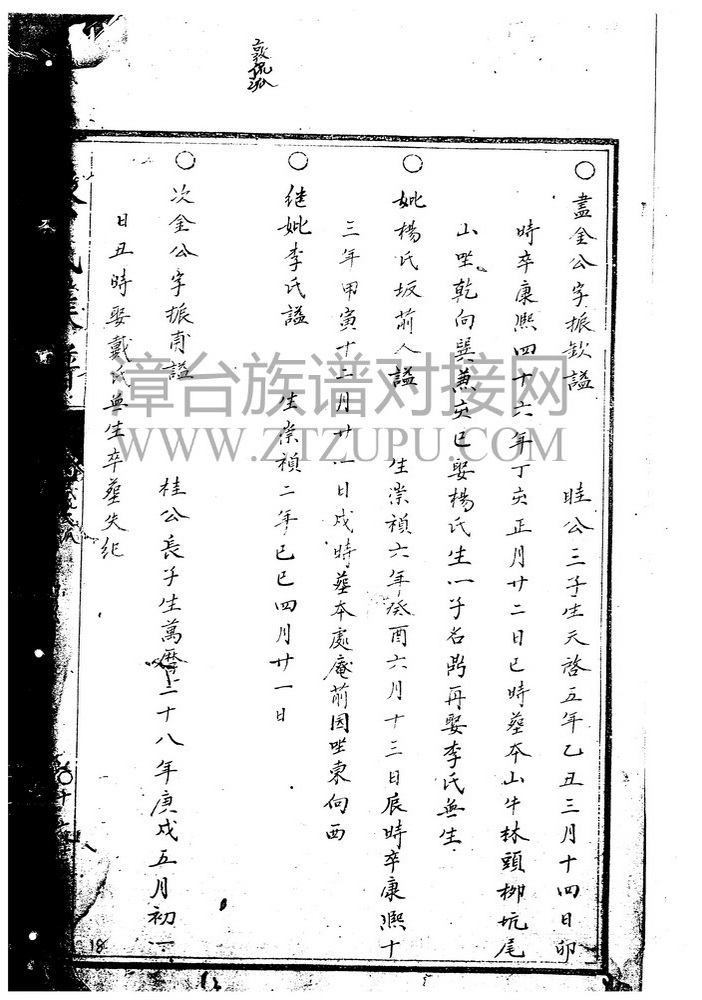 ○盡金公字振欽謚　畦公三子生天啓五年乙丑三月十四日卯
時卒康熙四十六年丁亥正月廿二日巳時葬本山牛林頭柳坑尾
山坐乾向巽兼亥巳娶楊氏生一子名勗再娶李氏無生
○妣楊氏坂前人謚　生崇禎六年癸酉六月十三日辰時卒康熙十
三年甲寅十二月廿一日戌時葬本處庵前園坐東向西
○継妣李氏謚　生崇禎二年己巳四月廿一日
○次金公字振甫謚　桂公長子生萬曆三十八年庚戌五月初一
日丑時娶戴氏無生卒葬失紀
18
漳台族谱对接网
WWW.ZTZUPU.COM